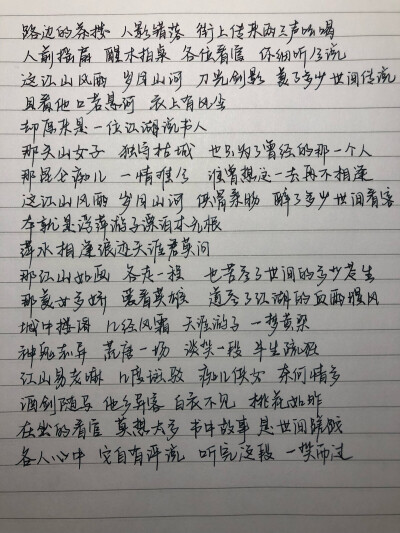 路边的茶楼 人影错落 街上传来两三声吆喝
人前摇扇 醒木拍桌 各位看官 你细听分说
这江山风雨 岁月山河 刀光剑影 美了多少世间传说
且看他口若悬河 衣上有风尘
却原来是一位江湖说书人
那关山女子 独守枯城 也只为了曾经的那一个人
那昆仑痴儿 一情难了 谁曾想这一去再不相逢
这江山风雨 岁月山河 侠骨柔肠 醉了多少世间看客
本就是浮萍游子漂泊本无根
萍水相逢浪迹天涯君莫问
那江山如画 各表一段 也苦尽了世间的多少苍生
那美女多娇 衬着英雄 道尽了江湖的血雨腥风
城中楼阁 几经风霜 天涯游子 一梦黄粱
神鬼志异 荒唐一场 谈笑一段 半生疏狂
江山易老嘛 几度蹉跎 痴儿侠女 奈何情多
酒剑随马 他乡异客 白衣不见 桃花如昨
在座的看官 莫想太多 书中故事 是世间
各人心中 它自有评说 听完这段 一笑而过